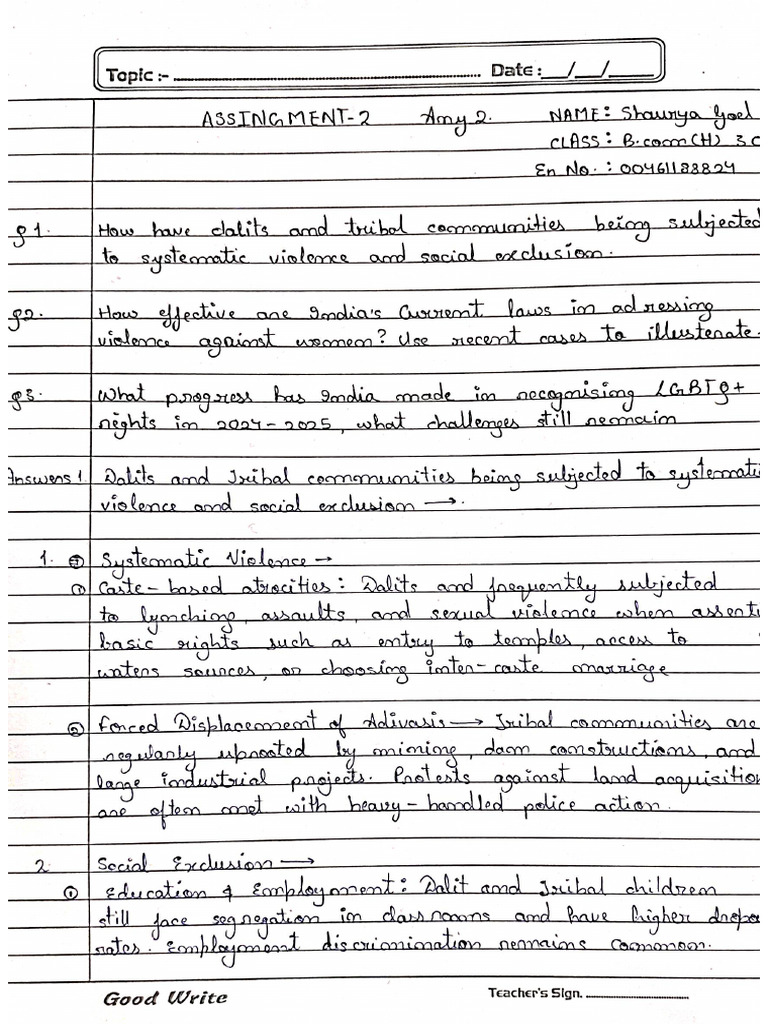 Topic :- Date: __/__/____
ASSINGMENT-2 Amy 2. NAME: Shaurya Goel
CLASS: B.com(H) 3C
En No. : 00461188824
Q1. How have dalits and tribal communities being subjected
to systematic violence and social exclusion.
Q2. How effective are India's Current laws in adressing
violence against women? Use recent cases to illustenate.
Q3. What progress has India made in recognising LGBTQ+
rights in 2024-2025, what challenges still remain
Answers 1. Dalits and Tribal communities being subjected to systemati
violence and social exclusion →.
1. Systematic Violence →
① Caste-based atrocities: Dalits and frequently subjected
to lynching, assaults, and sexual violence when asserti
basic rights such as entry to temples, access to
waters sources, or choosing inter-caste marriage
② Forced Displacement of Adivasis → Tribal communities are
regularly uprooted by mining, dam constructions, and
large industrial projects. Protests against land acquisition
are often met with heavy-handled police action.
2. Social Exclusion →
① Education & Employment: Dalit and Tribal children
still face segregation in classrooms and have higher dropo
rates. Employment discrimination remains common.
Good Write Teacher's Sign.